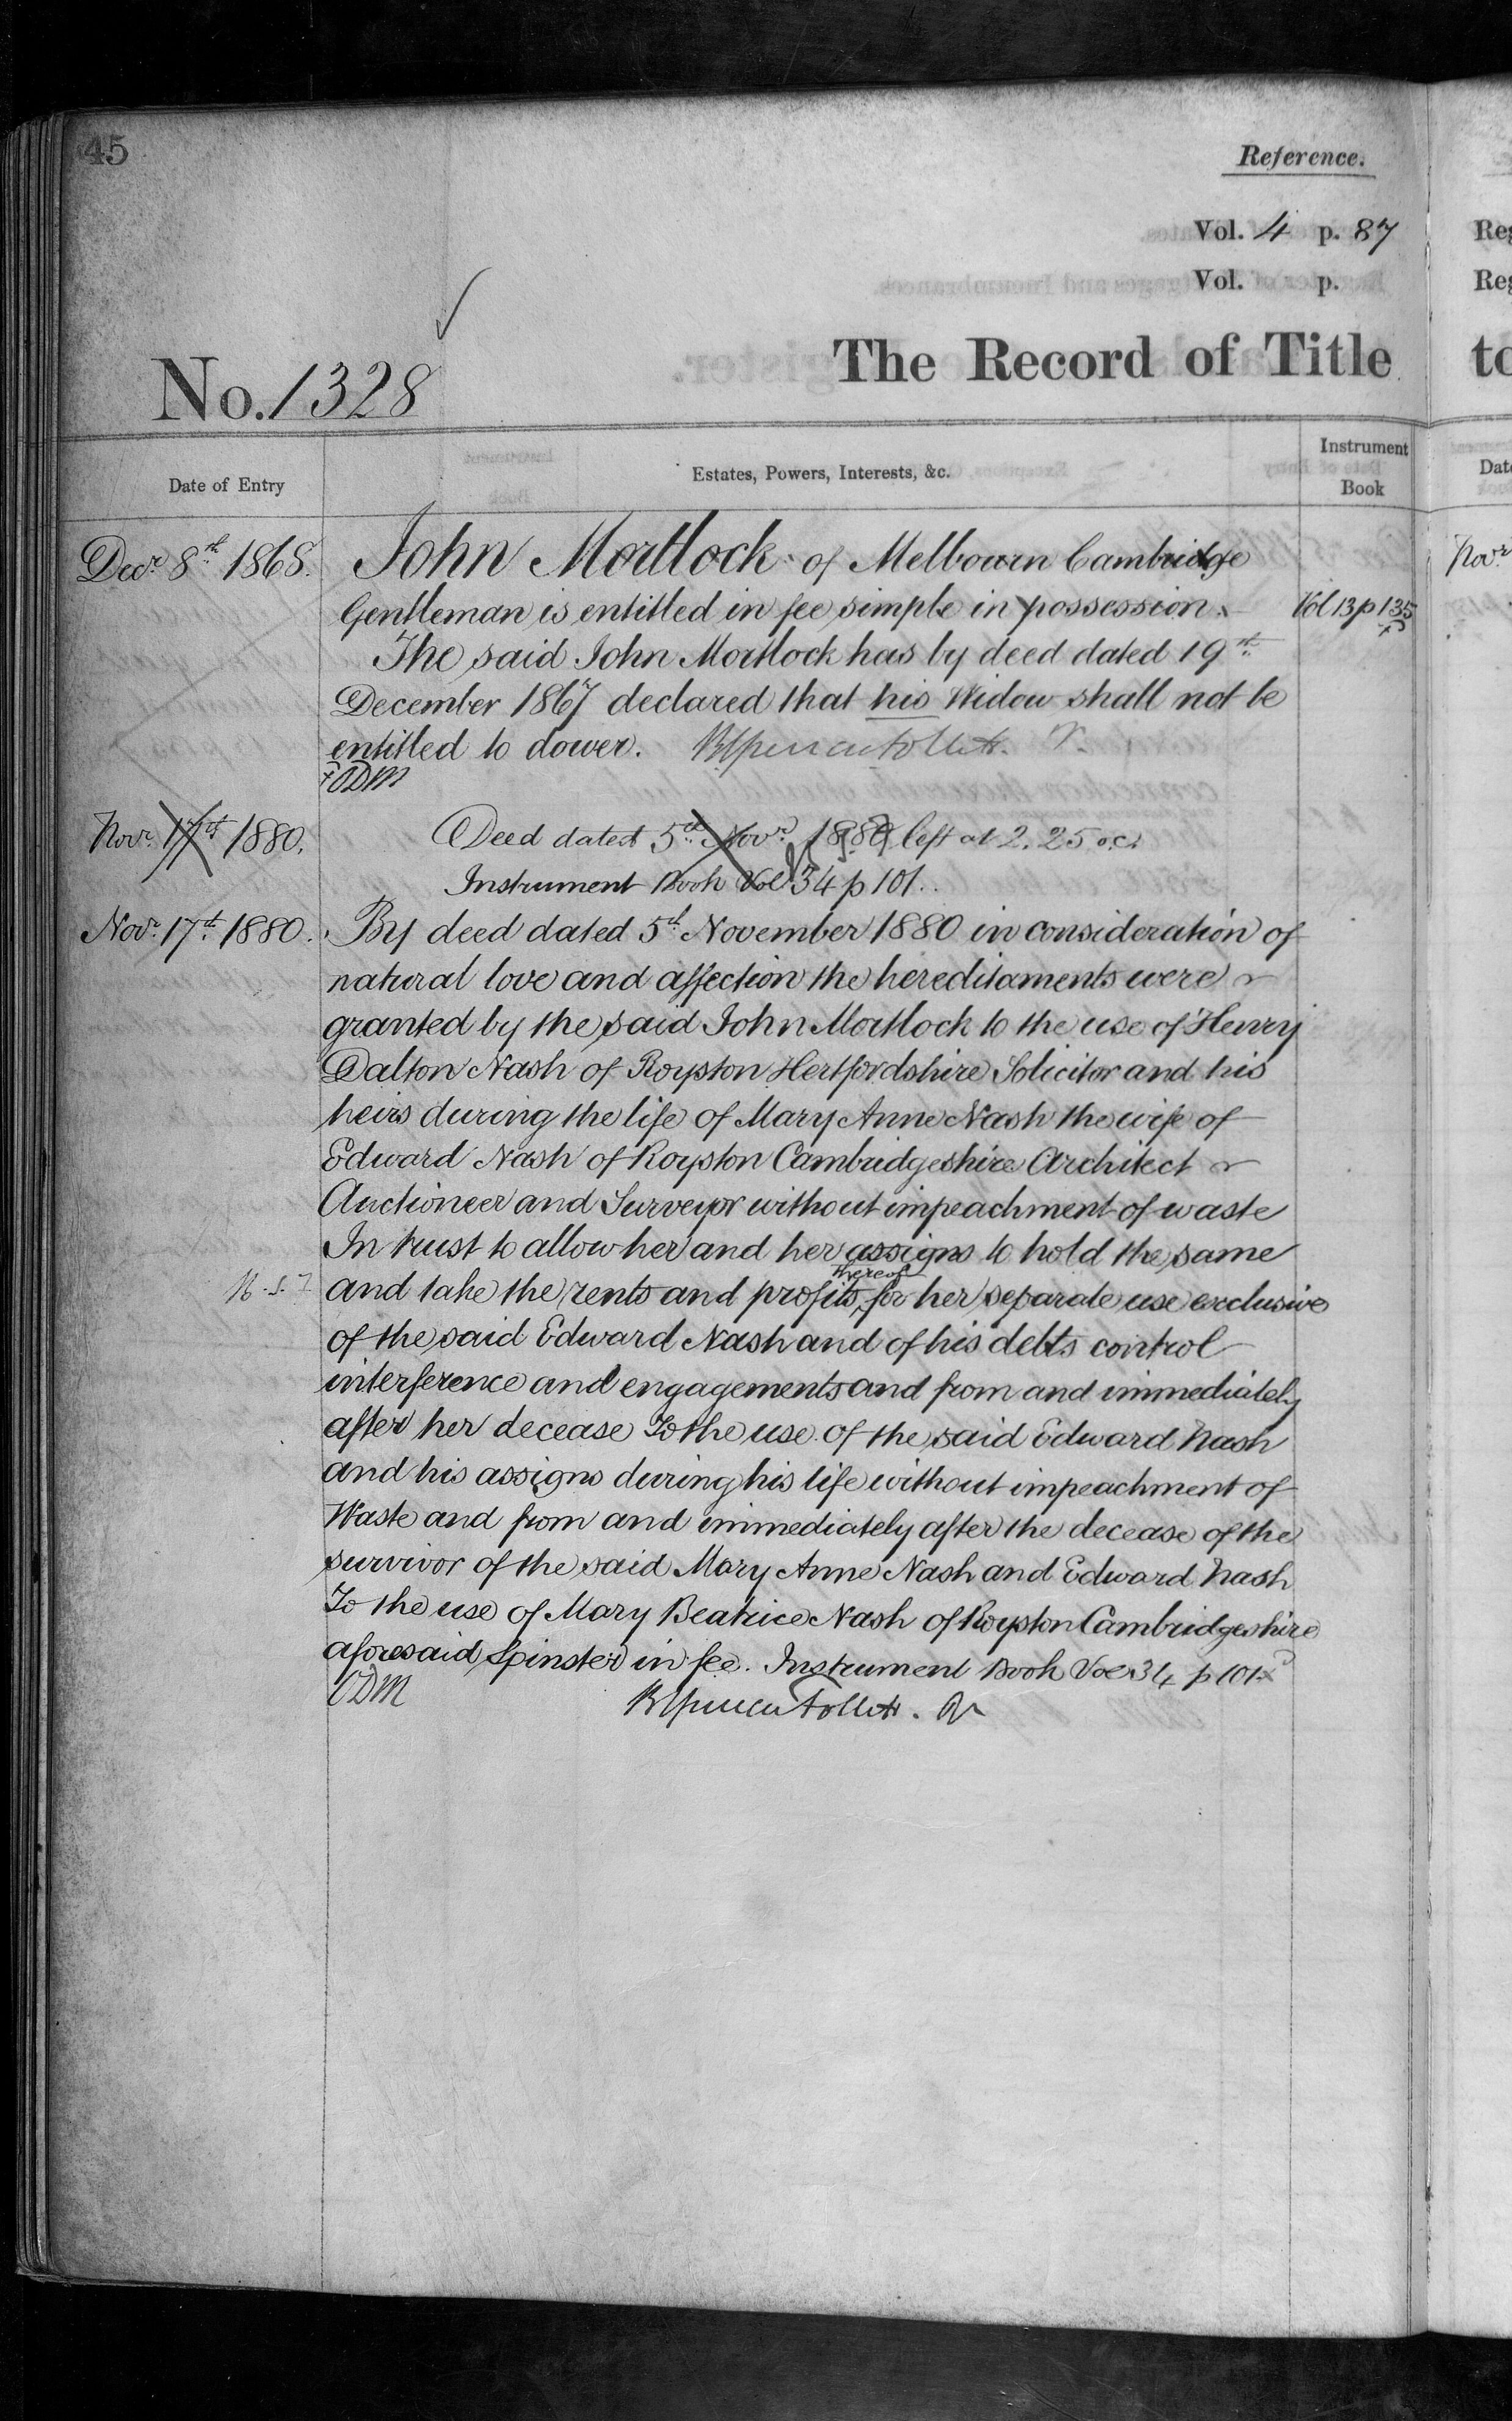 45
Reference.
Vol. 4 p. 87
Vol. p.
The Record of Title
No. 1328
Date of Entry
Estates, Powers, Interests, &c.
Instrument Book
Decr. 8th 1868.
John Mortlock of Melbourn Cambridge
Gentleman is entitled in fee simple in possession.
Vol 13 p 135
The said John Mortlock has by deed dated 19th
December 1867 declared that his Widow shall not be
entitled to dower.
Novr. 17th 1880.
Deed dated 5th Novr. 1880 left at 2.25 o.c.
Instrument Book Vol 34 p 101.
Novr. 17th 1880.
By deed dated 5th November 1880 in consideration of
natural love and affection the hereditaments were
granted by the said John Mortlock to the use of Henry
Dalton Nash of Royston Hertfordshire Solicitor and his
heirs during the life of Mary Anne Nash the wife of
Edward Nash of Royston Cambridgeshire Architect
Auctioneer and Surveyor without impeachment of waste
In trust to allow her and her assigns to hold the same
and take the rents and profits thereof for her separate use exclusive
of the said Edward Nash and of his debts control
interference and engagements and from and immediately
after her decease To the use of the said Edward Nash
and his assigns during his life without impeachment of
Waste and from and immediately after the decease of the
survivor of the said Mary Anne Nash and Edward Nash
To the use of Mary Beatrice Nash of Royston Cambridgeshire
aforesaid Spinster in fee. Instrument Book Vol 34 p 101
Reg
Reg
to
Date
Novr.